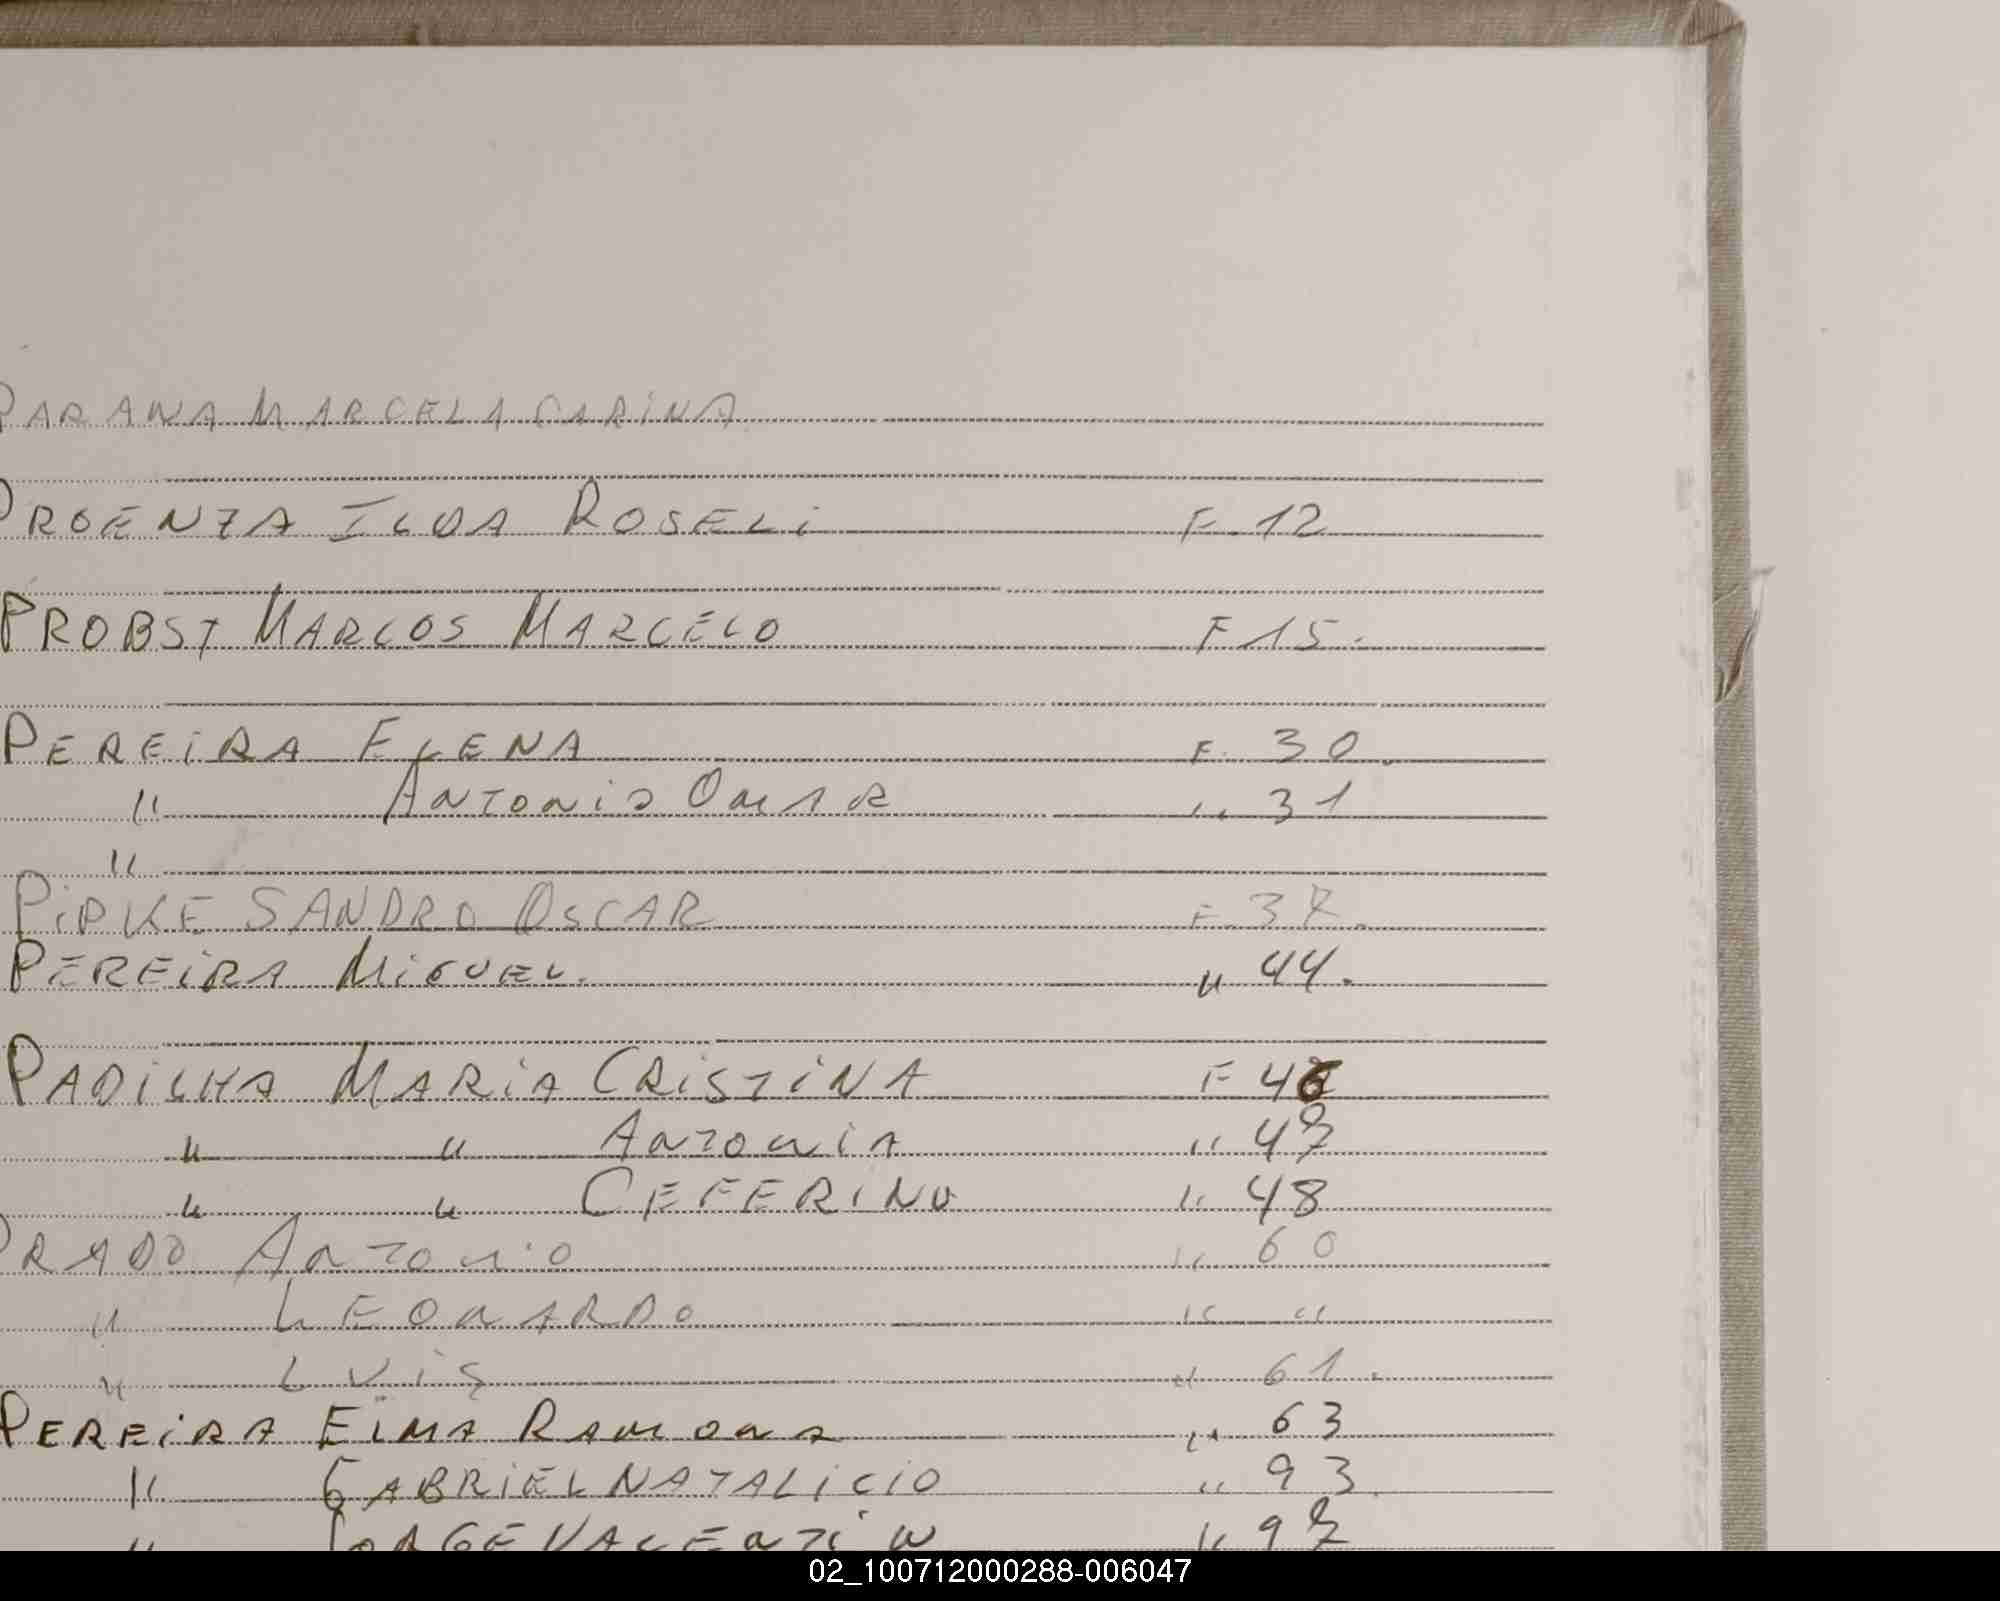 PARANA MARCELA CARINA
PROENZA ILDA ROSELi F. 12
PROBST MARCOS MARCELO F 15.
PEREiRA ELENA F. 30.
" ANTONiO OMAR " 31
"
PiPKE SANDRO OSCAR F. 37.
PEREiRA MiGUEL. " 44.
PADiLHA MARiA CRiSTiNA F 46
" " ANTONiA " 47
" " CEFERINO " 48
PRADO ANTONiO " 60
" LEONARDO " "
" LUiS " 61.
PEREiRA ELMA RAMONA " 63
" GABRiEL NATALiCiO " 93.
" JORGE VALENTiN " 97
02_100712000288-006047